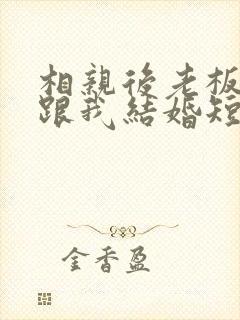 相親後老板
跟我結婚短
金香盈